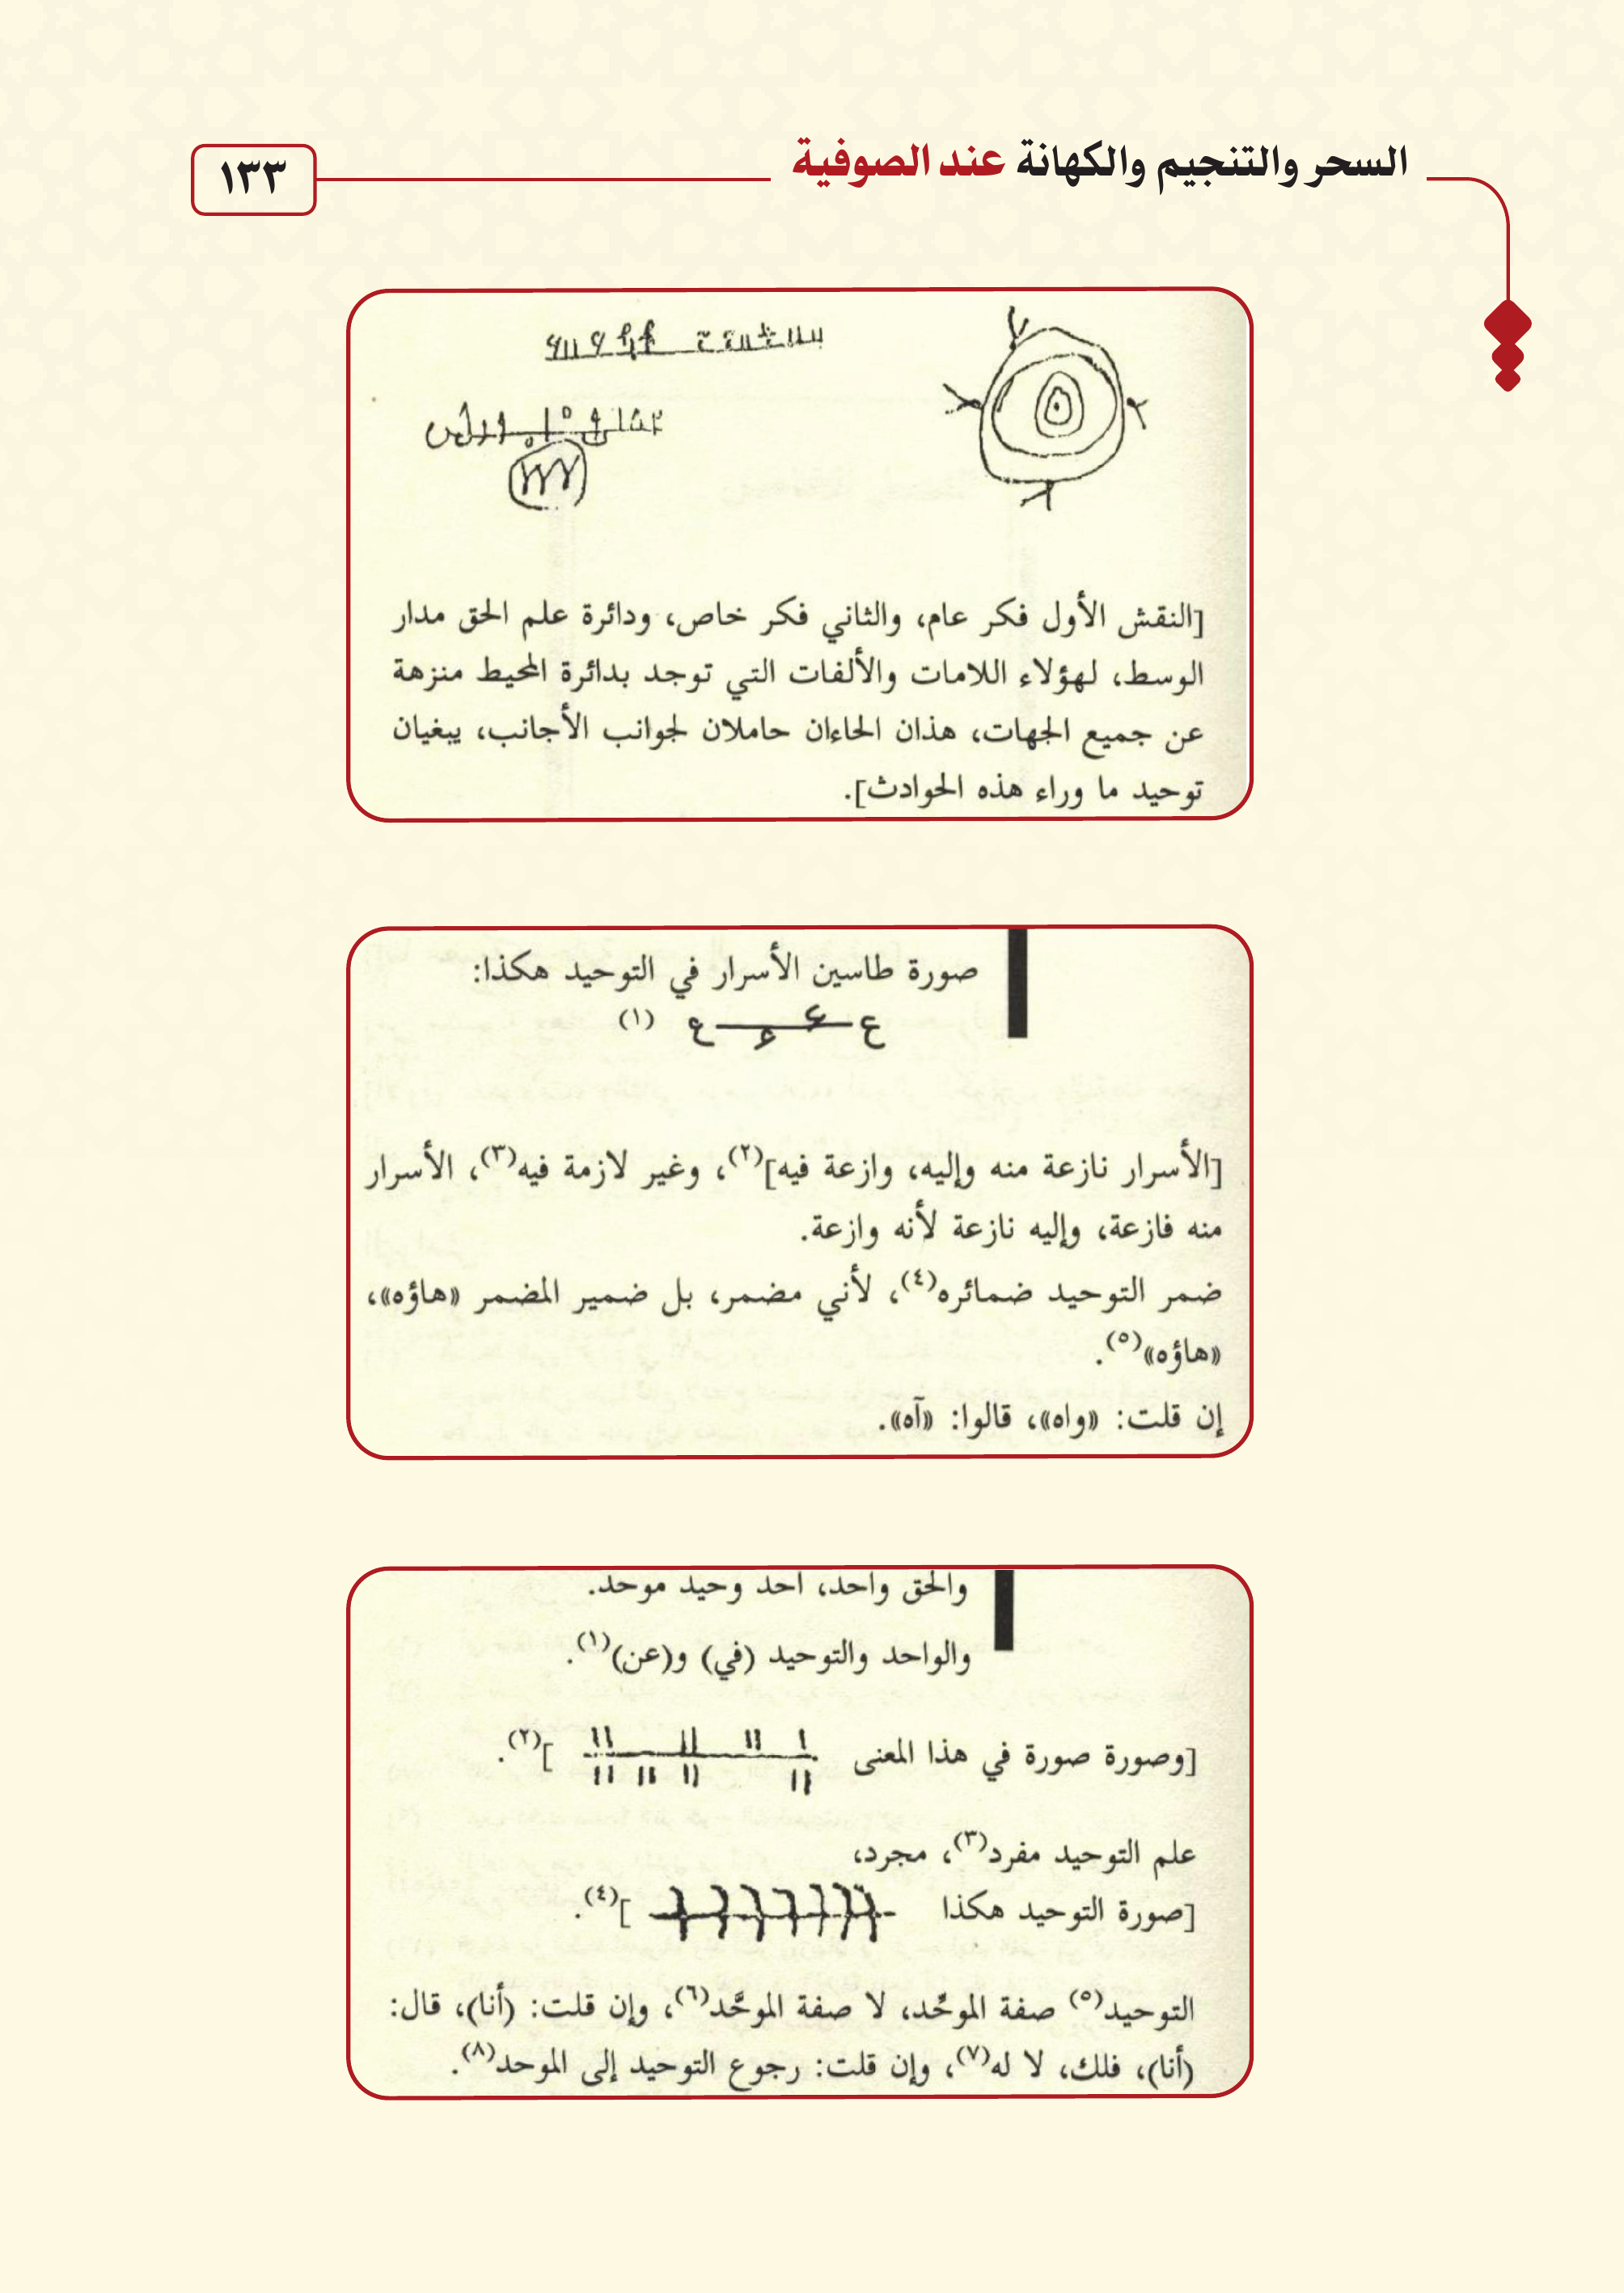 السحر والتنجيم والكهانة عند الصوفية
١٣٣
[النقش الأول فكر عام، والثاني فكر خاص، ودائرة علم الحق مدار
الوسط، لهؤلاء اللامات والألفات التي توجد بدائرة المحيط منزهة
عن جميع الجهات، هذان الحاءان حاملان لجوانب الأجانب، يبغيان
توحيد ما وراء هذه الحوادث].
صورة طاسين الأسرار في التوحيد هكذا:
(١)
[الأسرار نازعة منه وإليه، وازعة فيه](٢)، وغير لازمة فيه(٣)، الأسرار
منه فازعة، وإليه نازعة لأنه وازعة.
ضمر التوحيد ضمائره(٤)، لأني مضمر، بل ضمير المضمر «هاؤه»،
«هاؤه»(٥).
إن قلت: «واه»، قالوا: «آه».
والحق واحد، احد وحيد موحد.
والواحد والتوحيد (في) و(عن)(١).
[وصورة صورة في هذا المعنى ](٢).
علم التوحيد مفرد(٣)، مجرد،
[صورة التوحيد هكذا ](٤).
التوحيد(٥) صفة الموحِّد، لا صفة الموحَّد(٦)، وإن قلت: (أنا)، قال:
(أنا)، فلك، لا له(٧)، وإن قلت: رجوع التوحيد إلى الموحد(٨).